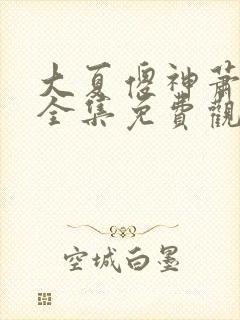 大夏傻神蕭
全集免費觀
空城白墨